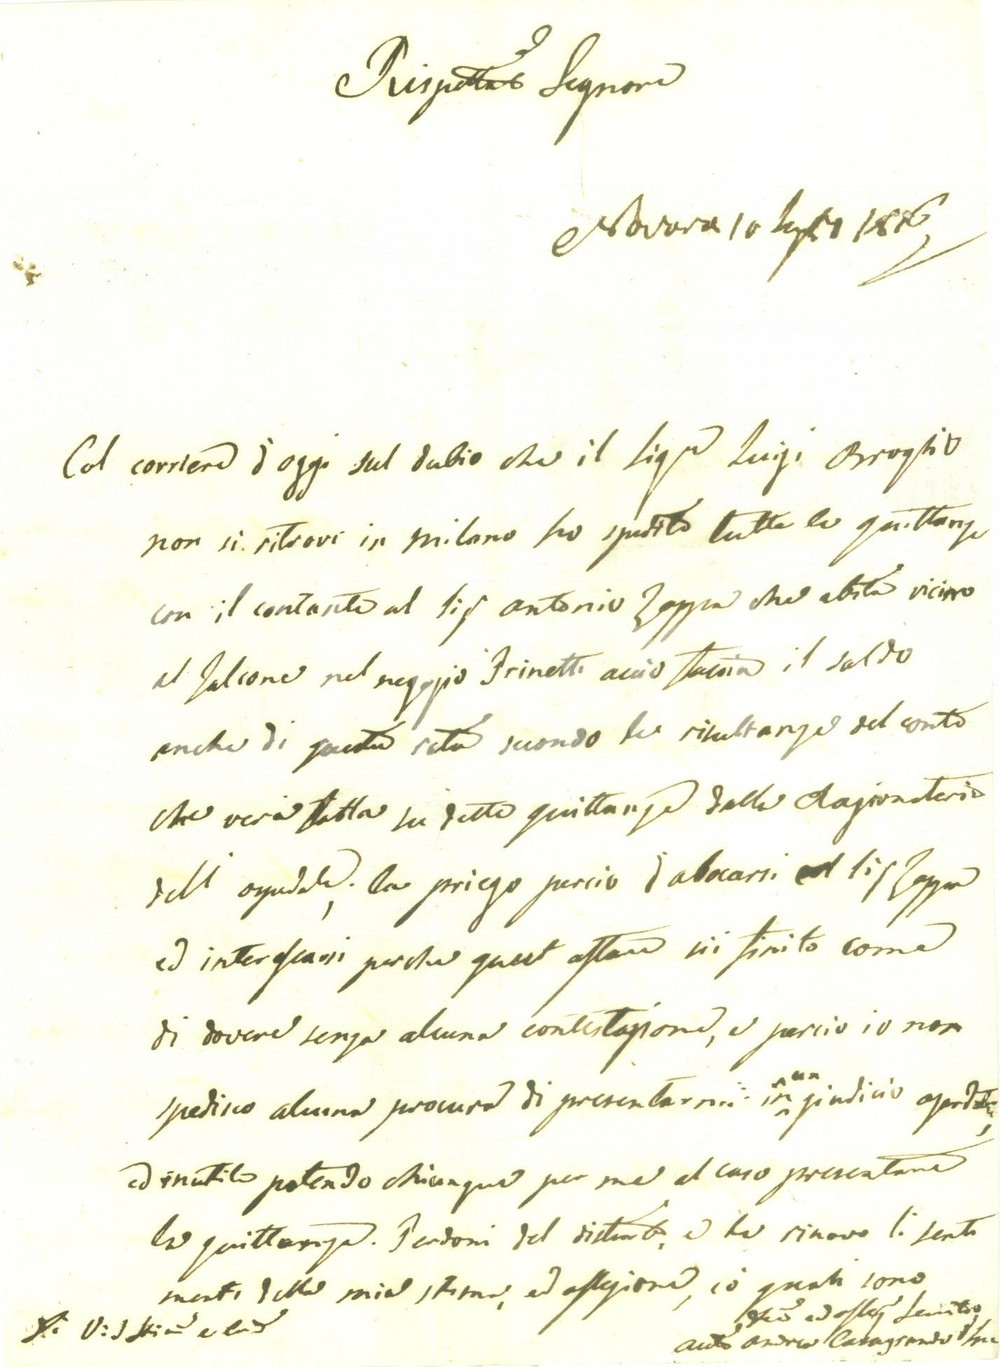 Rispettab.e Signore
Novara 10 luglio 1816
Col corriere d'oggi sul dubio che il Sig.re Luigi Broglio
non si ritrovi in Milano ho spedito tutte le quittanze
con il contante al Sig. Antonio Zappa che abita vicino
al Falcone nel negozio Prinetti acciò faccia il saldo
anche di questa rata secondo le risultanze del conto
che verrà fatto su dette quittanze dalla Ragionateria
dell' ospedale; la priego perciò d'abocarsi col Sig. Zappa
ed interessarsi perche quest affare sii finito come
di dovere senza alcuna contestazione, e perciò io non
spedisco alcuna procura di presentarmi in un giudicio
ed inutile potendo chiunque per me al caso presentare
le quittanze. Perdoni del disturbo, e le rinovo li senti
menti della mia stima, ed affezione, cò quali sono
Di V: S
ed aff. Servitore
Andrea Casagrande